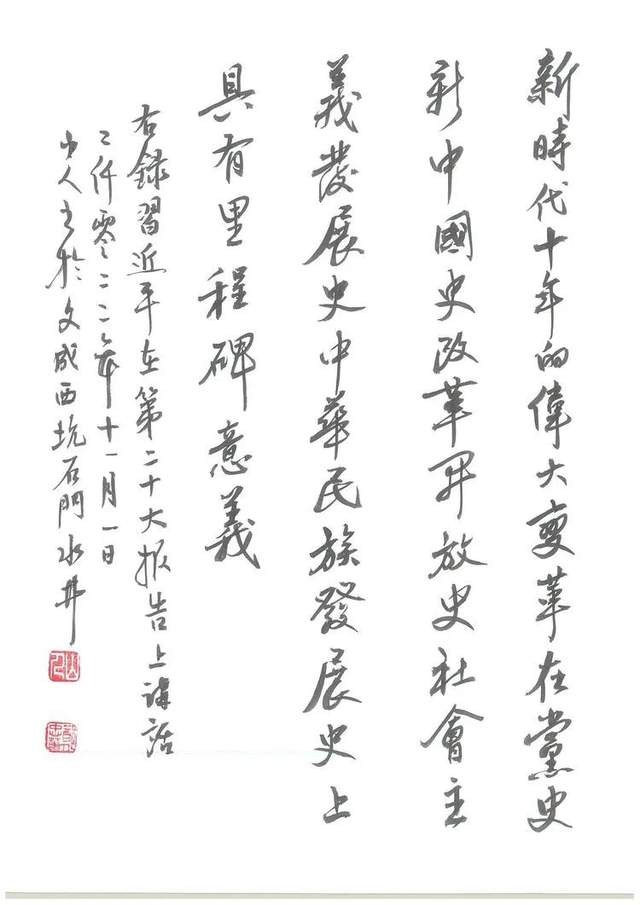 新時代十年的偉大變革在黨史
新中國史改革开放史社會主
義發展史中華民族發展史上
具有里程碑意義
右録習近平在第二十大报告上講話
二仟零二二年十一月一日
山人书於文成西坑石門水井